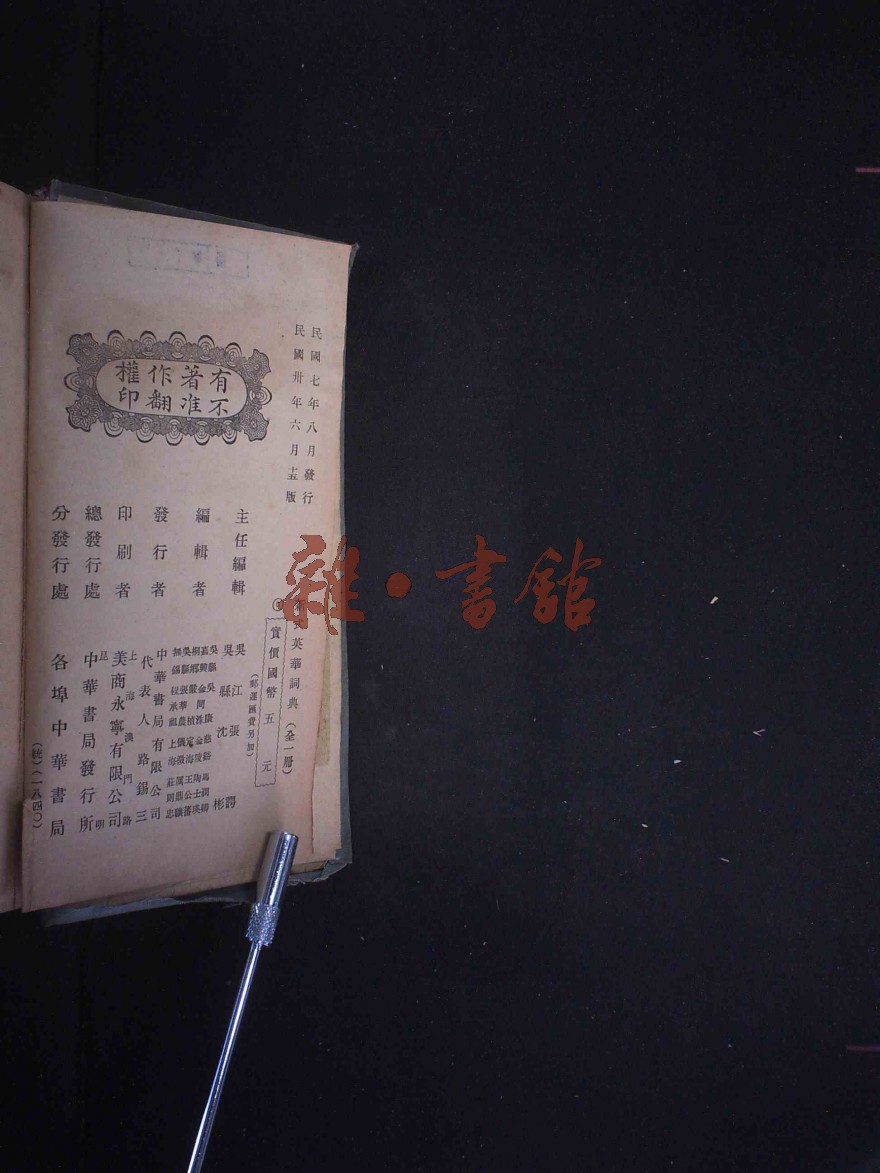 民國七年八月發行
民國卅年六月十五版
英華詞典（全一冊）
實價國幣五元
（郵運匯費另加）
有著作權
不准翻印
主任編輯
吳江張諤
吳縣沈彬
編輯者
發行者
中華書局有限公司
代表人路錫三
印刷者
上海澳門路
美商永寧有限公司
總發行處
昆明
中華書局發行所
分發行處
各埠中華書局
（統）（一八四〇）
雜·書館